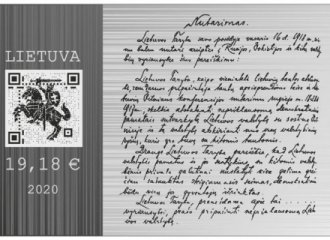 Nutarimas.
Lietuvos Taryba savo posėdyje vasario 16 d. 1918 m. vie-
LIETUVA
nu balsu nutarė kreiptis: į Rusijos, Vokietijos ir kitų valsty-
bių vyriausybes šiuo pareiškimu:
Lietuvos Taryba, kaipo vienintelė lietuvių tautos atstovy-
bė, remdamos pripažintąja tautų apsisprendimo teise ir lietu-
vių Vilniaus konferencijos nutarimu rugsėjo
skelbia atstatanti nepriklausomą, demokratiniais
pamatais sutvarkytą Lietuvos valstybę su sostine Vil-
niuje ir tą valstybę atskirianti nuo visų valstybinių
ryšių, kurie yra buvę su kitomis tautomis.
Drauge Lietuvos Taryba pareiškia, kad Lietuvos
19,18 €
valstybės pamatus ir jos santykius su kitomis valsty-
bėmis privalo galutinai nustatyti kiek galima grei-
čiau sušauktas steigiamasis seimas, demokratiniu
2020
būdu visų jos gyventojų išrinktas.
Lietuvos Taryba, pranešdama apie tai
vyriausybei, prašo pripažinti nepriklausomą Lietu-
vos valstybę.